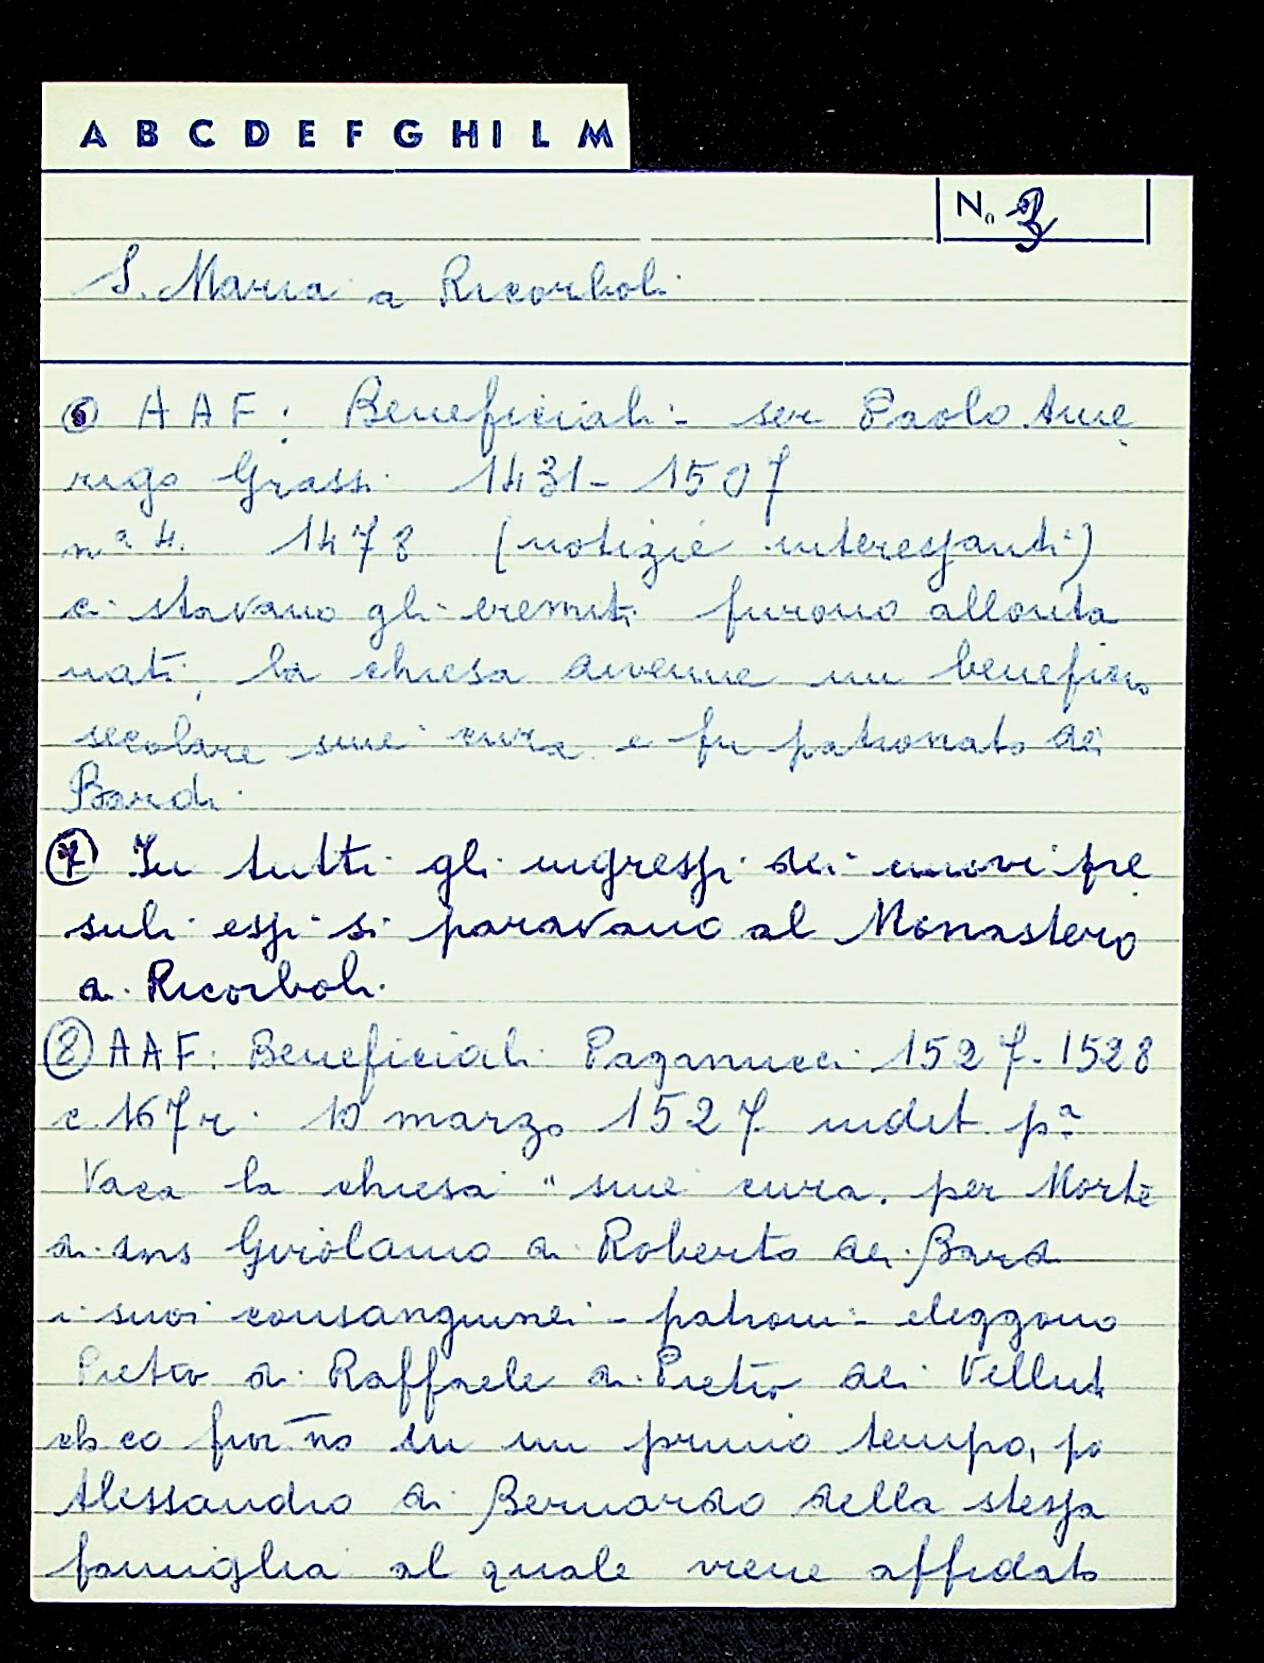 A B C D E F G H I L M
N. 3
S. Maria a Ricorboli
⑥ AAF: Beneficiali: ser Paolo Ame
rigo Grassi 1431-1507
n° 4. 1478 (notizie interessanti)
ci stavano gli eremiti furono allonta
nati, la chiesa divenne un beneficio
secolare sine cura e fu patronato dei
Bardi.
⑦ In tutti gli ingressi dei nuovi pre
suli essi si paravano al Monastero
a Ricorboli.
⑧ AAF: Beneficiali Paganucci 1527-1528
c. 167r. 10 marzo 1527 indet. pª
Vaca la chiesa "sine cura. per Morte
di Girolamo di Roberto dei Bardi
i suoi consanguinei - patroni - eleggono
Pietro di Raffaele di Pietro dei Velluti
fior̄no in un primo tempo, poi
Alessandro di Bernardo della stessa
famiglia al quale viene affidato